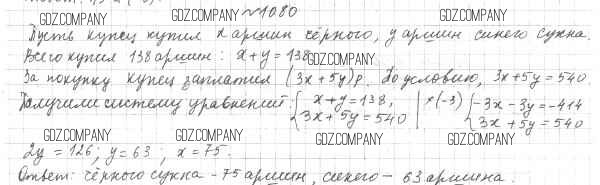 GDZ.COMPANY GDZ.COMPANY GDZ.COMPANY
№1080
Пусть купец купил x аршин чёрного, y аршин синего сукна.
Всего купил 138 аршин: x+y=138
GDZ.COMPANY
За покупку купец заплатил (3x+5y)р. По условию, 3x+5y=540.
Получили систему уравнений: { x+y=138, | ×(-3) { -3x-3y=-414
3x+5y=540 3x+5y=540
GDZ.COMPANY GDZ.COMPANY GDZ.COMPANY GDZ.COMPANY
2y=126; y=63; x=75.
Ответ: чёрного сукна - 75 аршин, синего - 63 аршина.